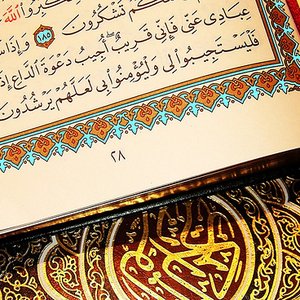 كم تشكرون ١٨٥ وإذا
عبادي عني فإني قريب ۖ أجيب دعوة الداع إذا
فليستجيبوا لي وليؤمنوا بي لعلهم يرشدون
٢٨